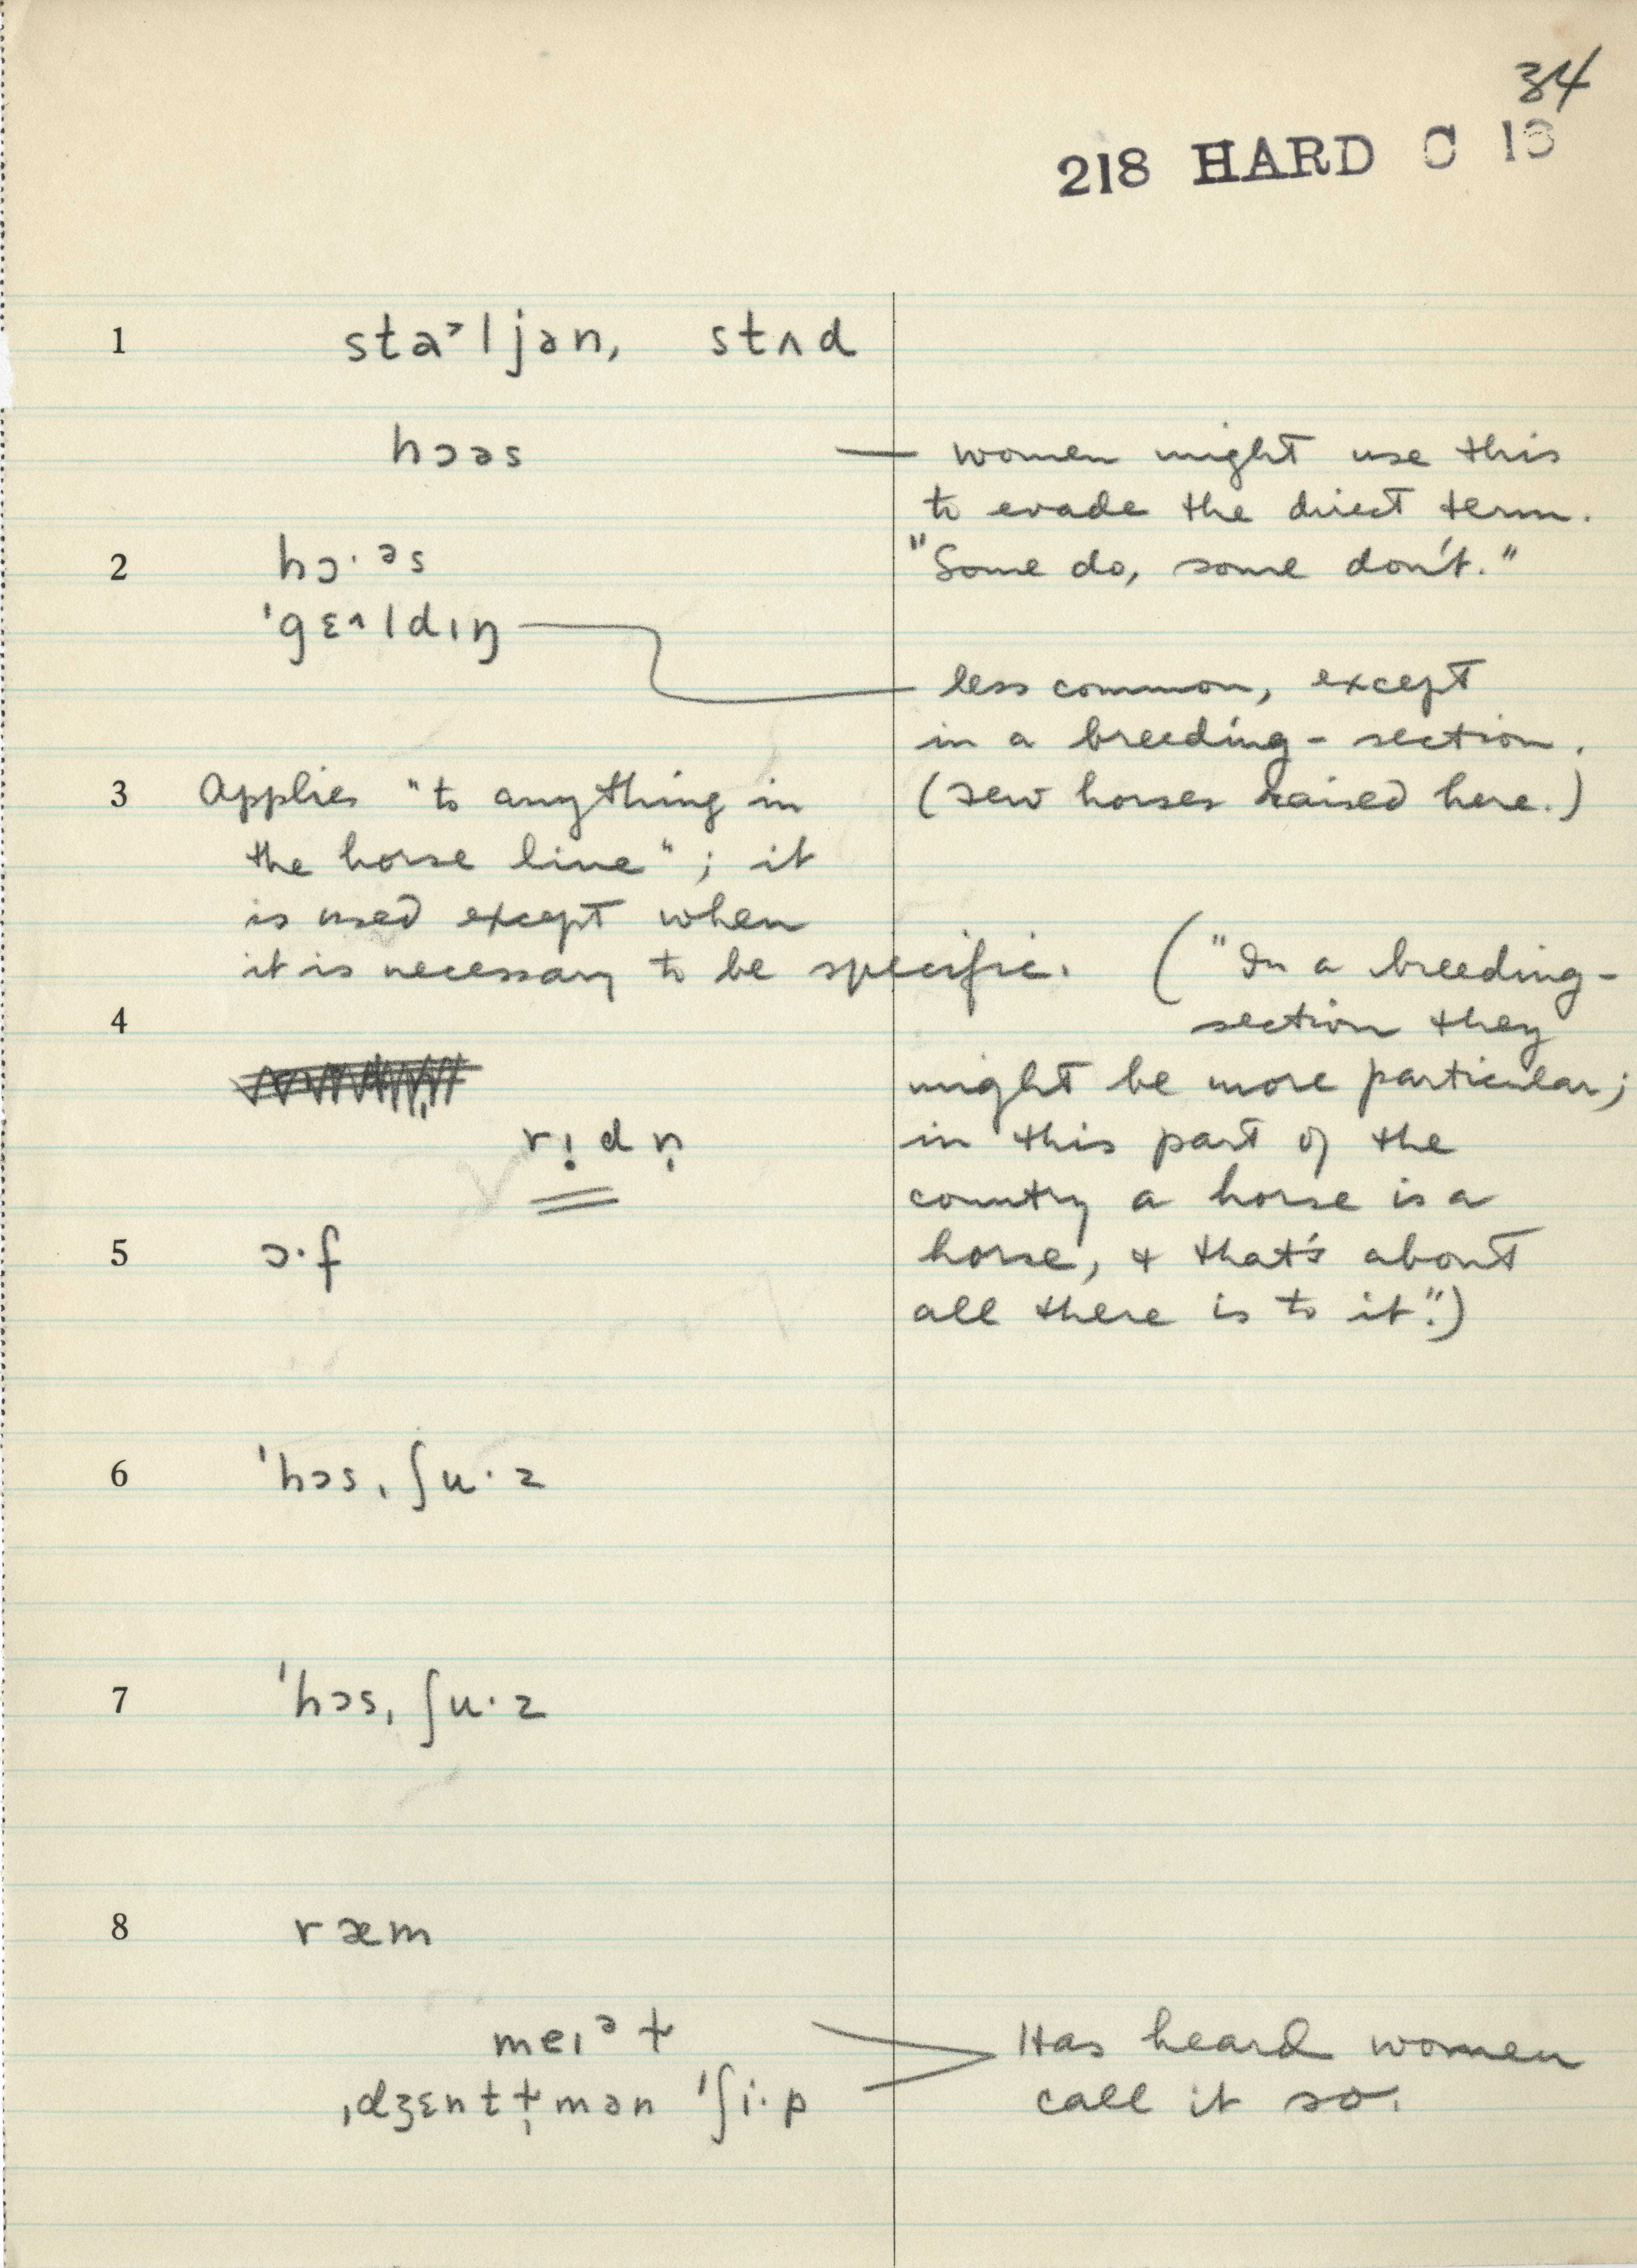 34
218 HARD C 13
1 sta˃ljən, stʌd
hɔəs — women might use this
to evade the direct term.
"Some do, some don't."
2 hɔ·ᵊs
ˈgɛ˄ldɪŋ
less common, except
in a breeding-section.
(few horses raised here.)
3 Applies "to anything in
the horse line"; it
is used except when
it is necessary to be specific.
("In a breeding-
section they
might be more particular;
in this part of the
country a horse is a
horse, & that's about
all there is to it".)
4
rịdṇ
5 ɔ·f
6 ˈhɔsˌʃu·z
7 ˈhɔsˌʃu·z
8 ræm
meɪᵊɫ
ˌdʒɛntɫ̩mən ˈʃi·p
Has heard women
call it so.